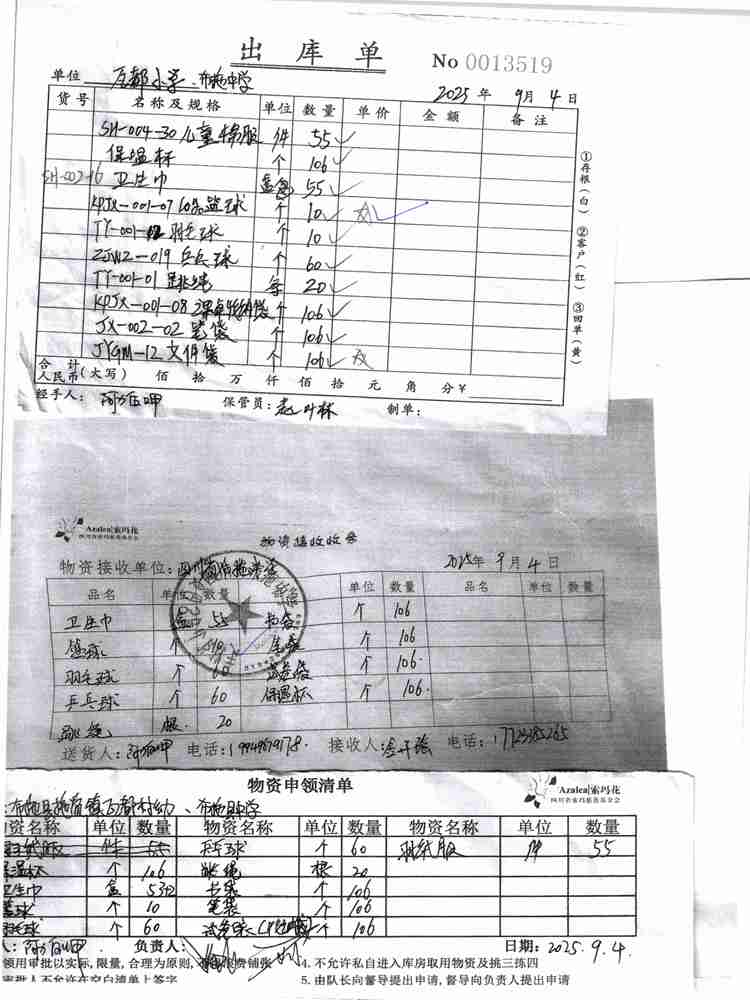 出库单
No 0013519
单位 瓦都小学、布拖中学 2025年9月4日
货号 名称及规格 单位 数量 单价 金额 备注
SH-004-30 儿童羽绒服 件 55
保温杯 个 106
SH-002-16 卫生巾 盒 55
KPJX-001-07 10#篮球 个 10
TY-001-02 羽毛球 个 10
ZJWZ-019 乒乓球 个 60
TY-001-01 跳绳 20
KPJX-001-08 个 106
JX-002-02 笔袋 个 106
JYGM-12 文件袋 个 106
①存根(白) ②客户(红) ③回单(黄)
合计
人民币(大写) 佰 拾 万 仟 佰 拾 元 角 分 ¥
经手人: 阿 呷 保管员: 赵 林 制单:
Azalea|索玛花
四川省索玛慈善基金会
物资接收收条
物资接收单位: 2025年9月4日
品名 单位 数量 单位 数量 品名 单位 数量
卫生巾 盒 55 书袋 个 106
篮球 笔袋 个 106
羽毛球 个 60 试卷袋 个 106.
乒乓球 个 60 保温杯 个 106.
跳绳 根 20
送货人: 电话: 接收人: 电话: 17723785265
物资申领清单
Azalea|索玛花
四川省索玛慈善基金会
资名称 单位 数量 物资名称 单位 数量 物资名称 单位 数量
件 55 乒乓球 个 60 羽绒服 件 55
温杯 个 106 跳绳 根 20
卫生巾 盒 书袋 个 106
篮球 个 10 笔袋 个 106
羽毛球 个 60 试卷袋 个 106
负责人: 日期: 2025.9.4.
领用审批以实际,限量,合理为原则, 费铺张 4. 不允许私自进入库房取用物资及挑三拣四
审批人不允许在空白清单上签字 5. 由队长向督导提出申请,督导向负责人提出申请